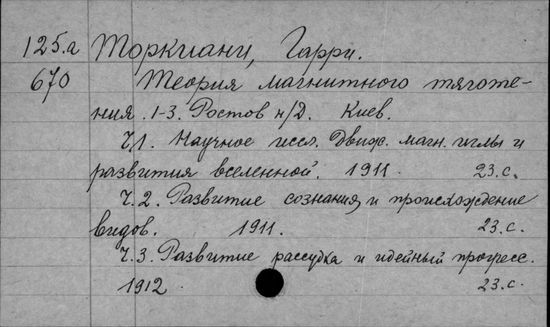 125.а Торкиани, Гарри.
670 Теория магнитного тяготе-
ния. 1-3. Ростов н/Д. Киев.
Ч.1. Научное иссл. движ. магн. иглы и
развития вселенной. 1911. 23.с.
Ч.2. Развитие сознания и происхождение
видов. 1911. 23.с.
Ч.3. Развитие рассудка и идейный прогресс.
1912 23.с.